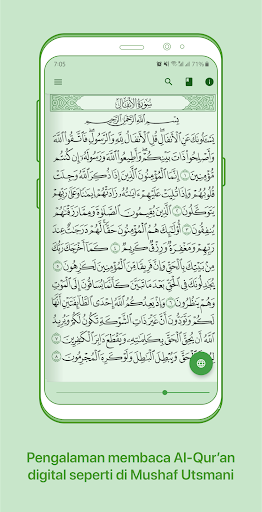 7:05
71%
سُورَةُ الأَنفَالِ
بِسْمِ ٱللَّهِ ٱلرَّحْمَٰنِ ٱلرَّحِيمِ
يَسْـَٔلُونَكَ عَنِ ٱلْأَنفَالِ ۖ قُلِ ٱلْأَنفَالُ لِلَّهِ وَٱلرَّسُولِ ۖ فَٱتَّقُوا۟ ٱللَّهَ
وَأَصْلِحُوا۟ ذَاتَ بَيْنِكُمْ ۖ وَأَطِيعُوا۟ ٱللَّهَ وَرَسُولَهُۥٓ إِن كُنتُم
مُّؤْمِنِينَ ١ إِنَّمَا ٱلْمُؤْمِنُونَ ٱلَّذِينَ إِذَا ذُكِرَ ٱللَّهُ وَجِلَتْ
قُلُوبُهُمْ وَإِذَا تُلِيَتْ عَلَيْهِمْ ءَايَٰتُهُۥ زَادَتْهُمْ إِيمَٰنًا وَعَلَىٰ رَبِّهِمْ
يَتَوَكَّلُونَ ٢ ٱلَّذِينَ يُقِيمُونَ ٱلصَّلَوٰةَ وَمِمَّا رَزَقْنَٰهُمْ
يُنفِقُونَ ٣ أُو۟لَٰٓئِكَ هُمُ ٱلْمُؤْمِنُونَ حَقًّا ۚ لَّهُمْ دَرَجَٰتٌ عِندَ
رَبِّهِمْ وَمَغْفِرَةٌ وَرِزْقٌ كَرِيمٌ ٤ كَمَآ أَخْرَجَكَ رَبُّكَ
مِنۢ بَيْتِكَ بِٱلْحَقِّ وَإِنَّ فَرِيقًا مِّنَ ٱلْمُؤْمِنِينَ لَكَٰرِهُونَ ٥
يُجَٰدِلُونَكَ فِى ٱلْحَقِّ بَعْدَ مَا تَبَيَّنَ كَأَنَّمَا يُسَاقُونَ إِلَى ٱلْمَوْتِ
وَهُمْ يَنظُرُونَ ٦ وَإِذْ يَعِدُكُمُ ٱللَّهُ إِحْدَى ٱلطَّآئِفَتَيْنِ أَنَّهَا
لَكُمْ وَتَوَدُّونَ أَنَّ غَيْرَ ذَاتِ ٱلشَّوْكَةِ تَكُونُ لَكُمْ وَيُرِيدُ
ٱللَّهُ أَن يُحِقَّ ٱلْحَقَّ بِكَلِمَٰتِهِۦ وَيَقْطَعَ دَابِرَ ٱلْكَٰفِرِينَ ٧
لِيُحِقَّ ٱلْحَقَّ وَيُبْطِلَ ٱلْبَٰطِلَ وَلَوْ كَرِهَ ٱلْمُجْرِمُونَ ٨
Pengalaman membaca Al-Qur'an
digital seperti di Mushaf Utsmani